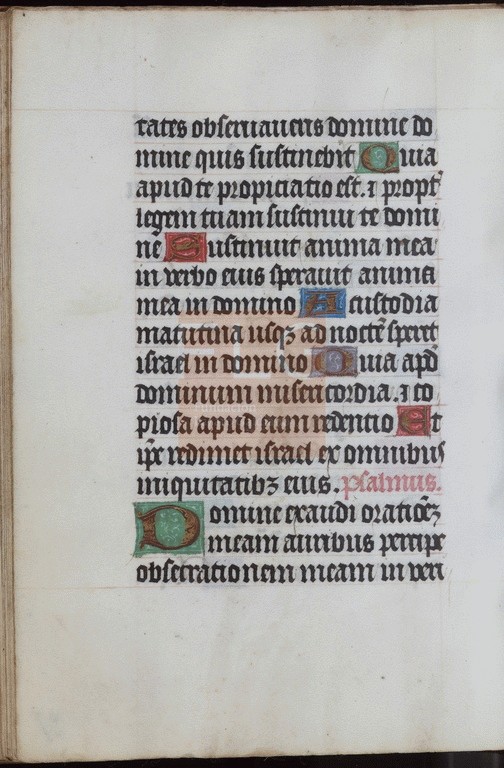 tates obseruaueris domine do
mine quis sustinebit Quia
apud te propiciatio est. ⁊ propt̄
legem tuam sustinui te domi
nē Sustinuit anima mea
in verbo eius sperauit anima
mea in domino A custodia
matutina usqꝫ ad noctē speret
israel in domino Quia apd̄
dominum misericordia. ⁊ co
piosa apud eum redentio Et
ip̄e redimet israel ex omnibus
iniquitatibꝫ eius. psalmus.
Domine exaudi oratioēꝫ
meam auribus percipe
obsecrationem meam in veri